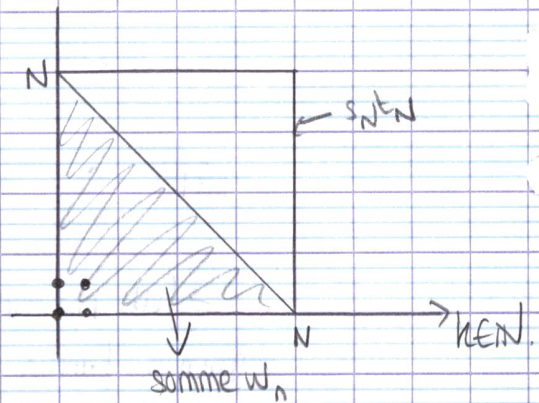 N
s_N t_N
N
k∈ℕ.
somme w_n